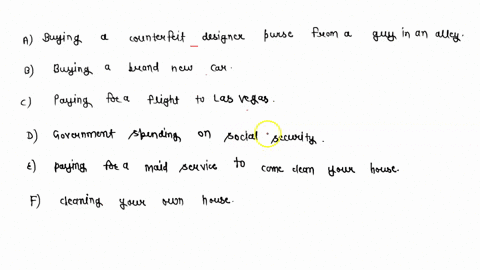 A) Buying a counterfeit designer purse from a guy in an alley.
B) Buying a brand new car.
C) Paying for a flight to Las vegas.
D) Government spending on social security.
E) paying for a maid service to come clean your house.
F) cleaning your own house.